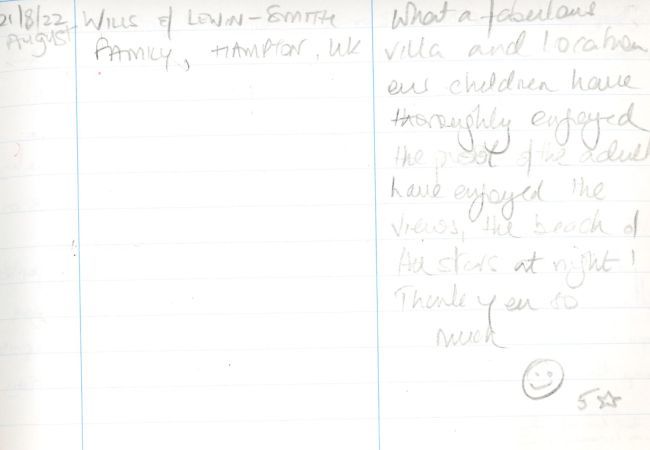 21/8/22
August
WILLS & LEWIN-SMITH
FAMILY, HAMPTON, UK
What a fabulous
villa and location
our children have
thoroughly enjoyed
the pool & the adults
have enjoyed the
views, the beach &
the stars at night!
Thank you so
much
5☆